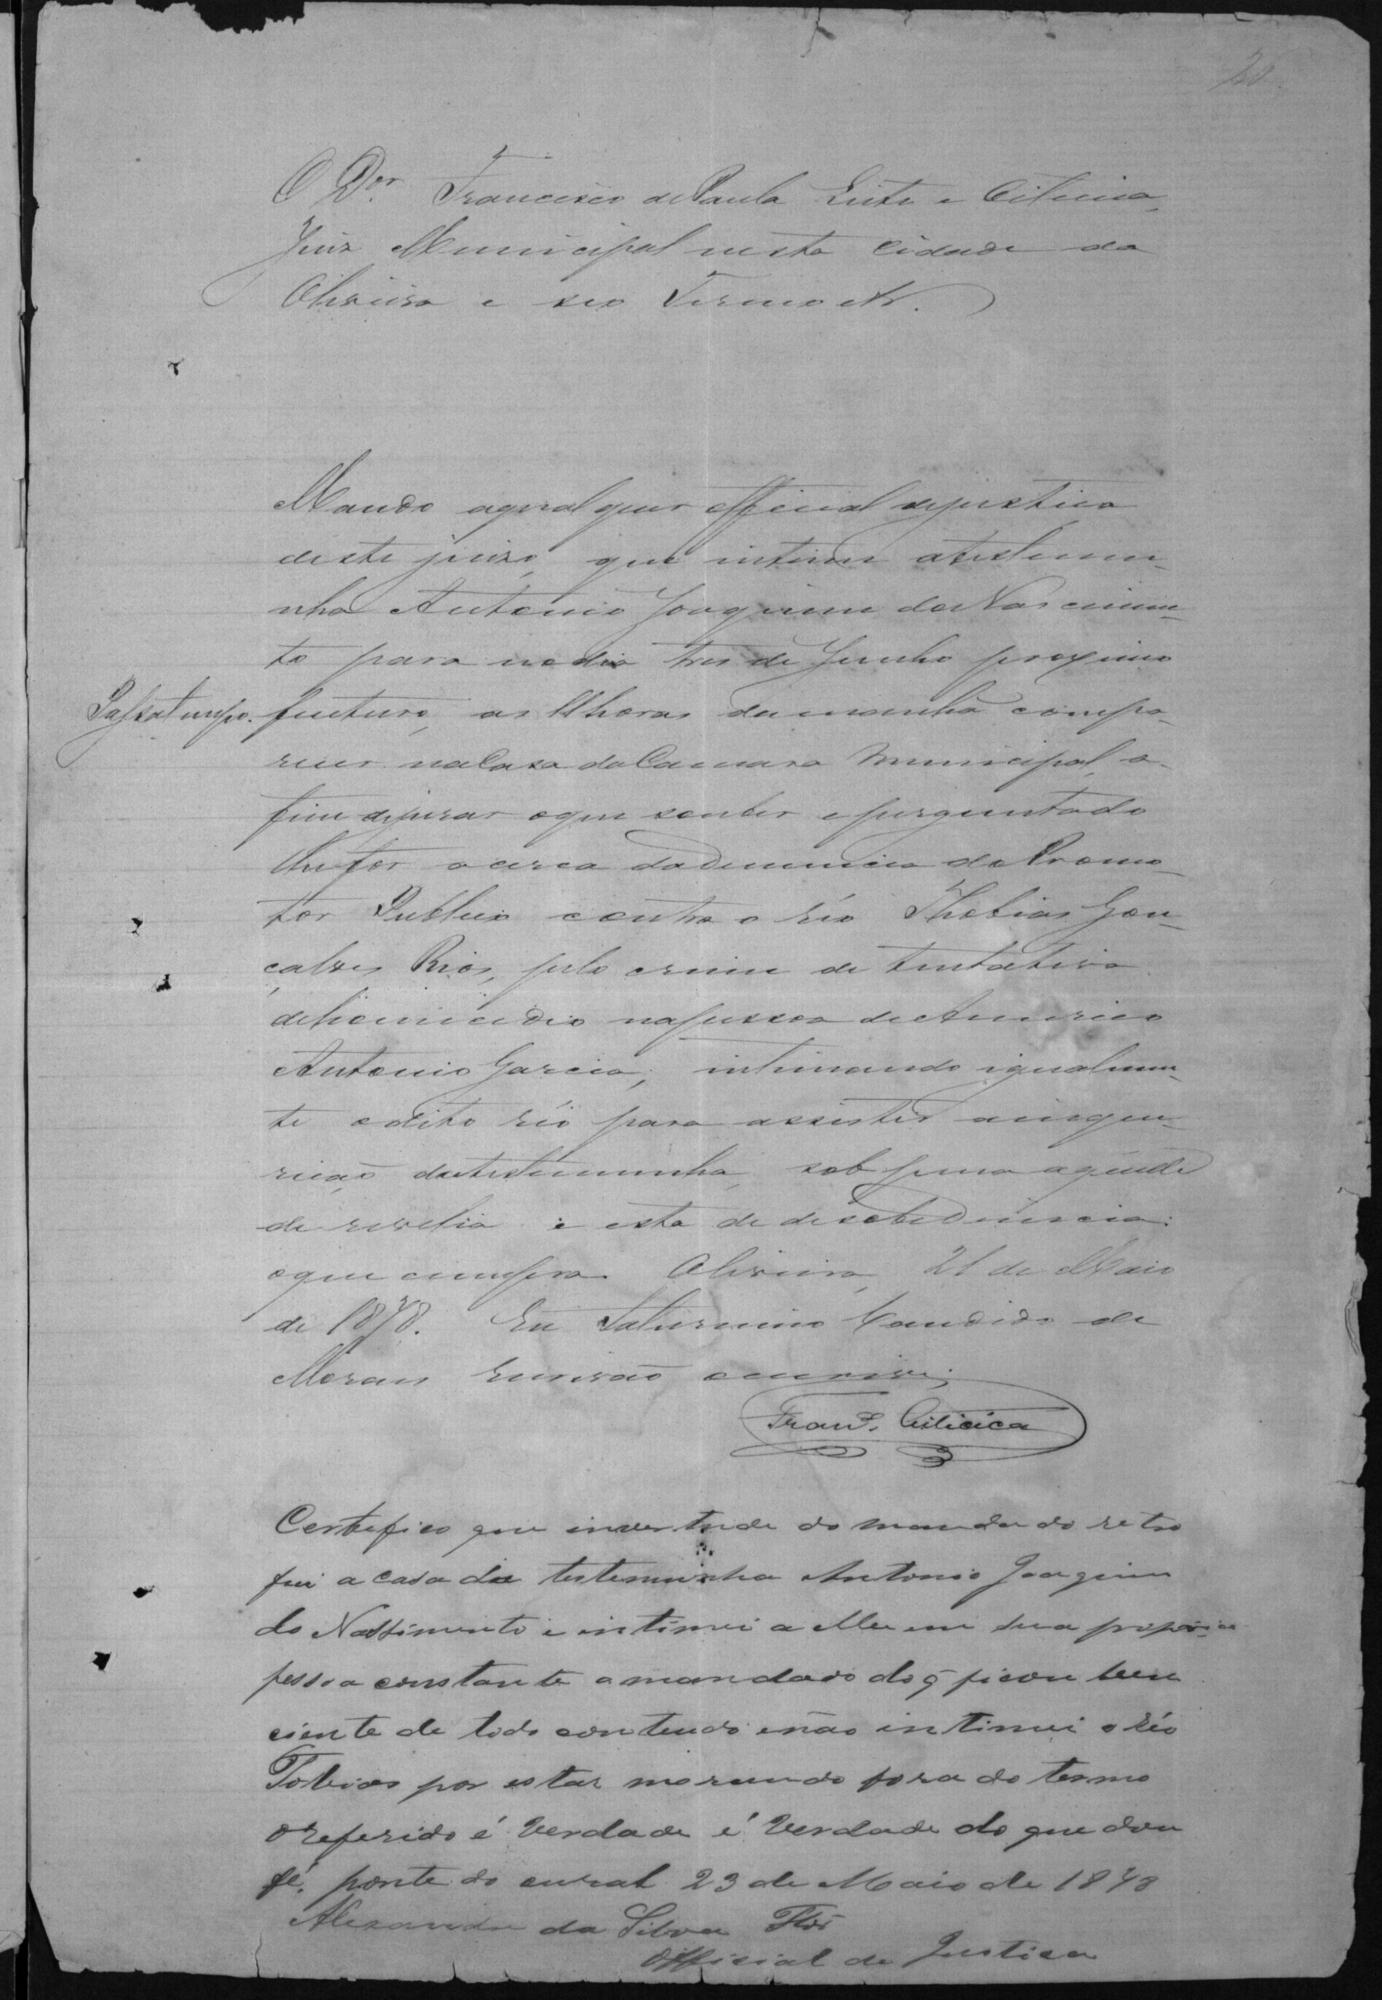 20
O Dor. Francisco de Paula Leite e Oiticica,
Juiz Municipal nesta Cidade da
Oliveira e seo Termo etc.
Mando aqualquer official dejustica
deste juizo, que intime atestemu-
nha Antonio Joaquim do Nascimen-
to para nodia tres de Junho proximo
Passatempo. futuro, as 11 horas damanhã compa-
recer na Casa da Camara Municipal, a-
fim dejurar oque souber eperguntado
lhe for acerca dadenuncia do Promo-
tor Publico contra o réo Thobias Gon-
çalves Rios, pelo crime de tentativa
dehomicidio napessoa de Americo
Antonio Garcia; intimando igualmen-
te odito réo para assistir ainque-
rição datestemunha, sob pena aquelle
de revelia e esta de desobediencia:
oque cumpra. Oliveira, 21 de Maio
de 1878. Eu Saturnino Candido de
Moraes Escrivão oescrivi;
Franco. Oiticica
Certefico que invertude do mandado retro
fui a casa da testemunha Antonio Joaquim
do Nassimento e intimei a elle em sua propria
pessoa constante o mandado do q ficou bem
ciente de todo conteudo enão intimei o réo
Tobias por estar morando fora do termo
o referido é Verdade é Verdade do que dou
fé, ponte do curral 23 de Maio de 1878
Alexandre da Silva Flor
Official de Justica